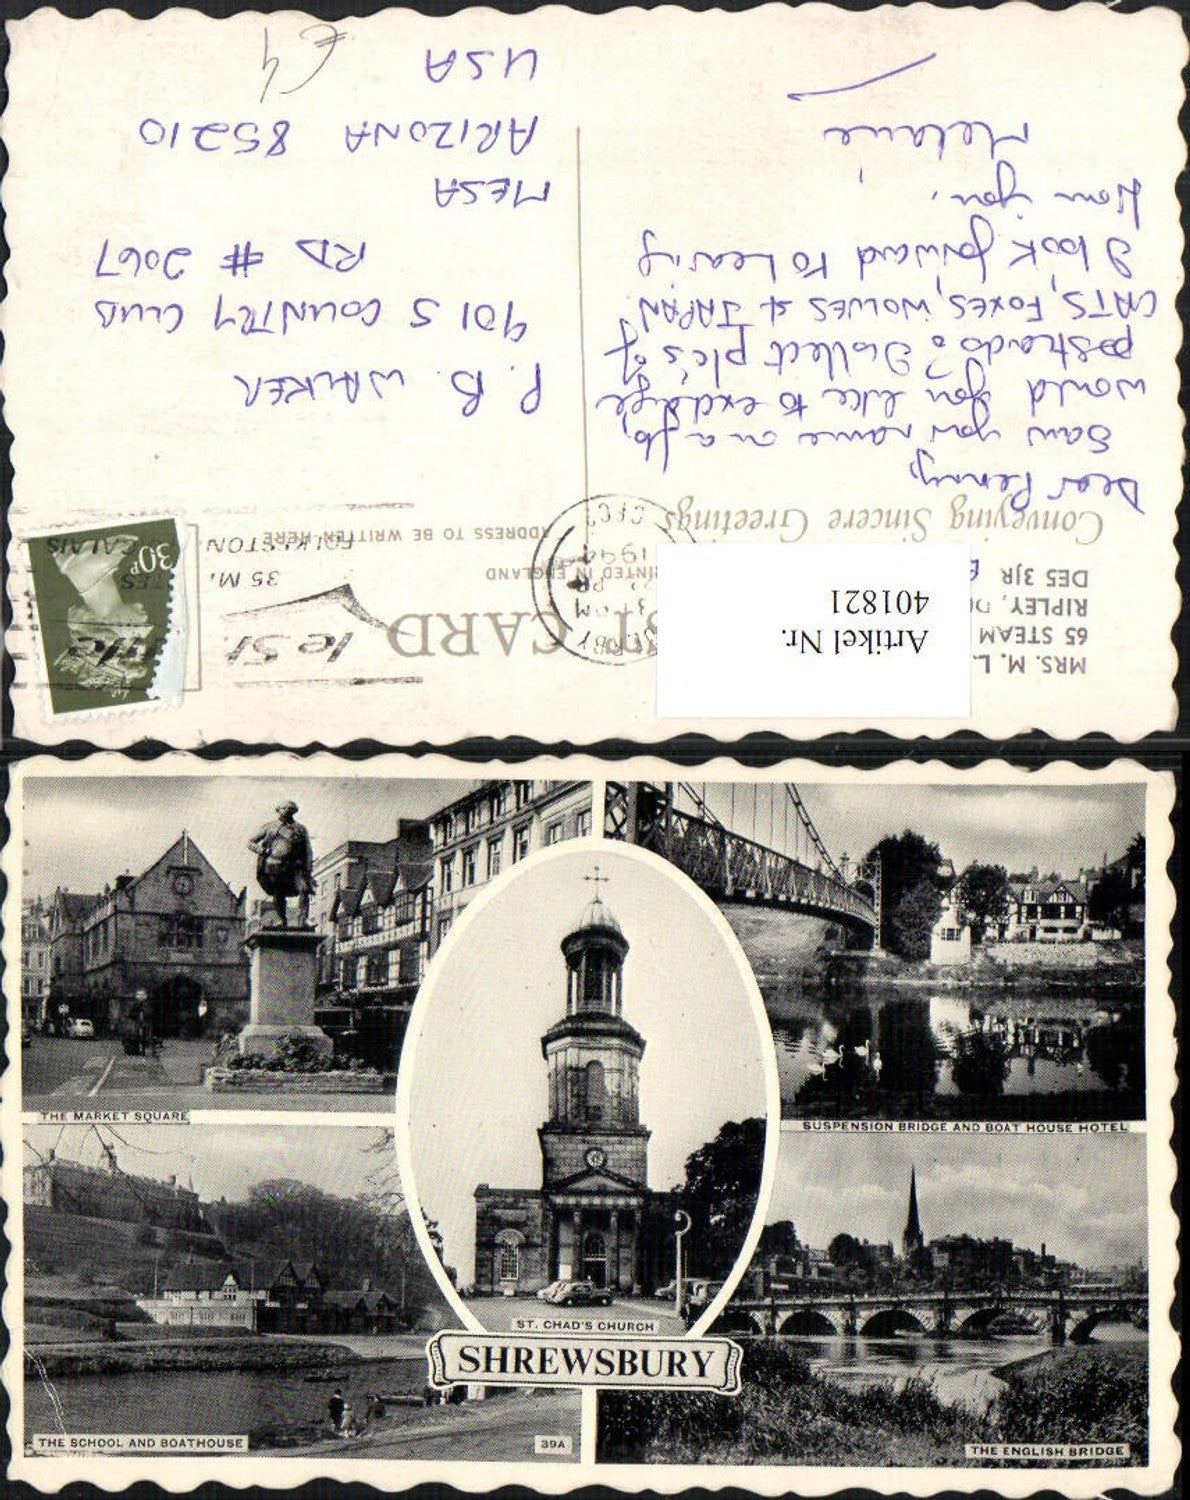 MRS. M. L.
65 STEAM
RIPLEY,
DE5 3JR
POST CARD
PRINTED IN ENGLAND
ADDRESS TO BE WRITTEN HERE
Conveying Sincere Greetings
Artikel Nr.
401821
DERBY
1994
35 M.
FOLKESTON
CALAIS
30P
Dear Penny,
Saw your name on a fb,
would you like to exchange
postcards? I collect pics of
CATS, FOXES, WOLVES & JAPAN.
I look forward to hearing
from you,
Melanie
P. B. WALKER
901 S COUNTRY CLUB
RD # 2067
MESA
ARIZONA 85210
USA
£4
THE MARKET SQUARE
SUSPENSION BRIDGE AND BOAT HOUSE HOTEL
ST. CHAD'S CHURCH
SHREWSBURY
THE SCHOOL AND BOATHOUSE
39A
THE ENGLISH BRIDGE